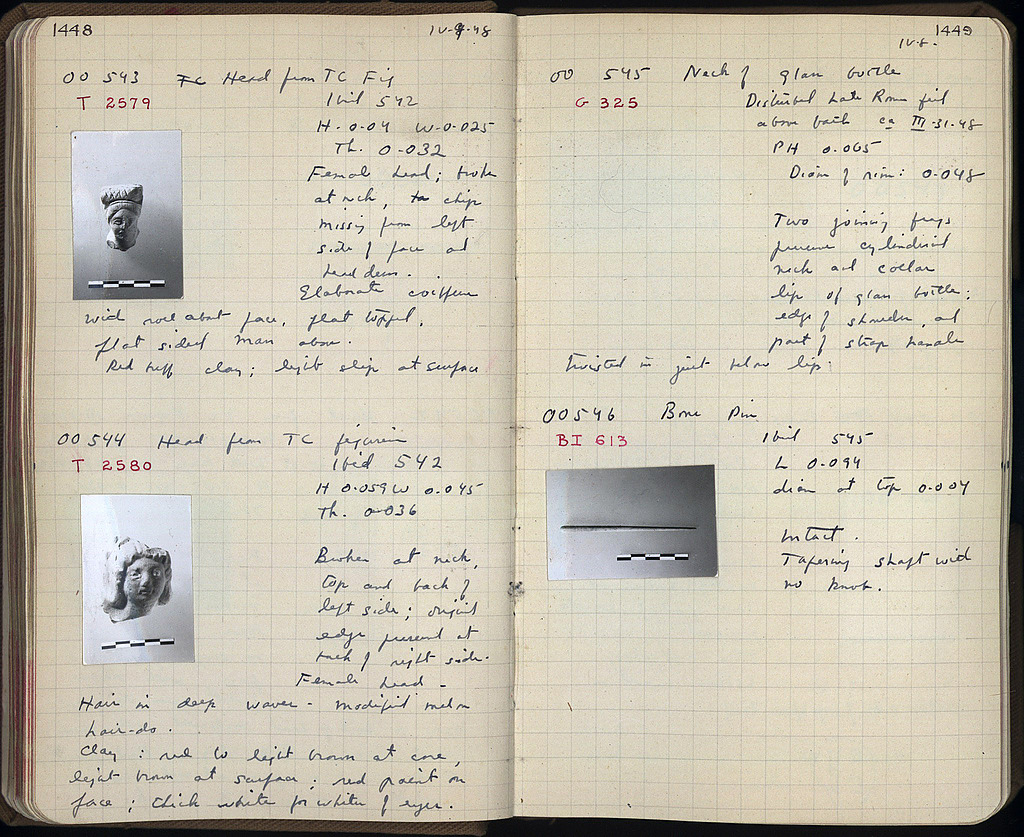 1448
IV-9-48
OO 543 TC Head from TC Fig
T 2579
Ibid 542
H. 0.04 W-0.025
Th. 0.032
Female head; broke
at neck, chip
missing from left
side of face and
head dress.
Elaborate coiffure
wide roll about face, flat topped,
flat sided mass above.
Red buff clay; light slip at surface
OO 544 Head from TC figurine
T 2580
Ibid 542
H 0.059 W 0.045
Th. 0.036
Broken at neck,
top and back of
left side; original
edge preserved at
back of right side.
Female head -
Hair in deep waves - modified melon
hair-do.
Clay: red to light brown at core,
light brown at surface; red paint on
face; thick white for white of eyes.
1449
IV-8-
OO 545 Neck of glass bottle
G 325
Disturbed Late Roman fill
above bath ca III-31-48
PH 0.065
Diam of rim: 0.048
Two joining frags
preserve cylindrical
neck and collar
lip of glass bottle;
edge of shoulder, and
part of strap handle
twisted in just below lip.
OO 546 Bone Pin
BI 613
Ibid 545
L 0.094
diam at top 0.004
Intact.
Tapering shaft with
no knob.